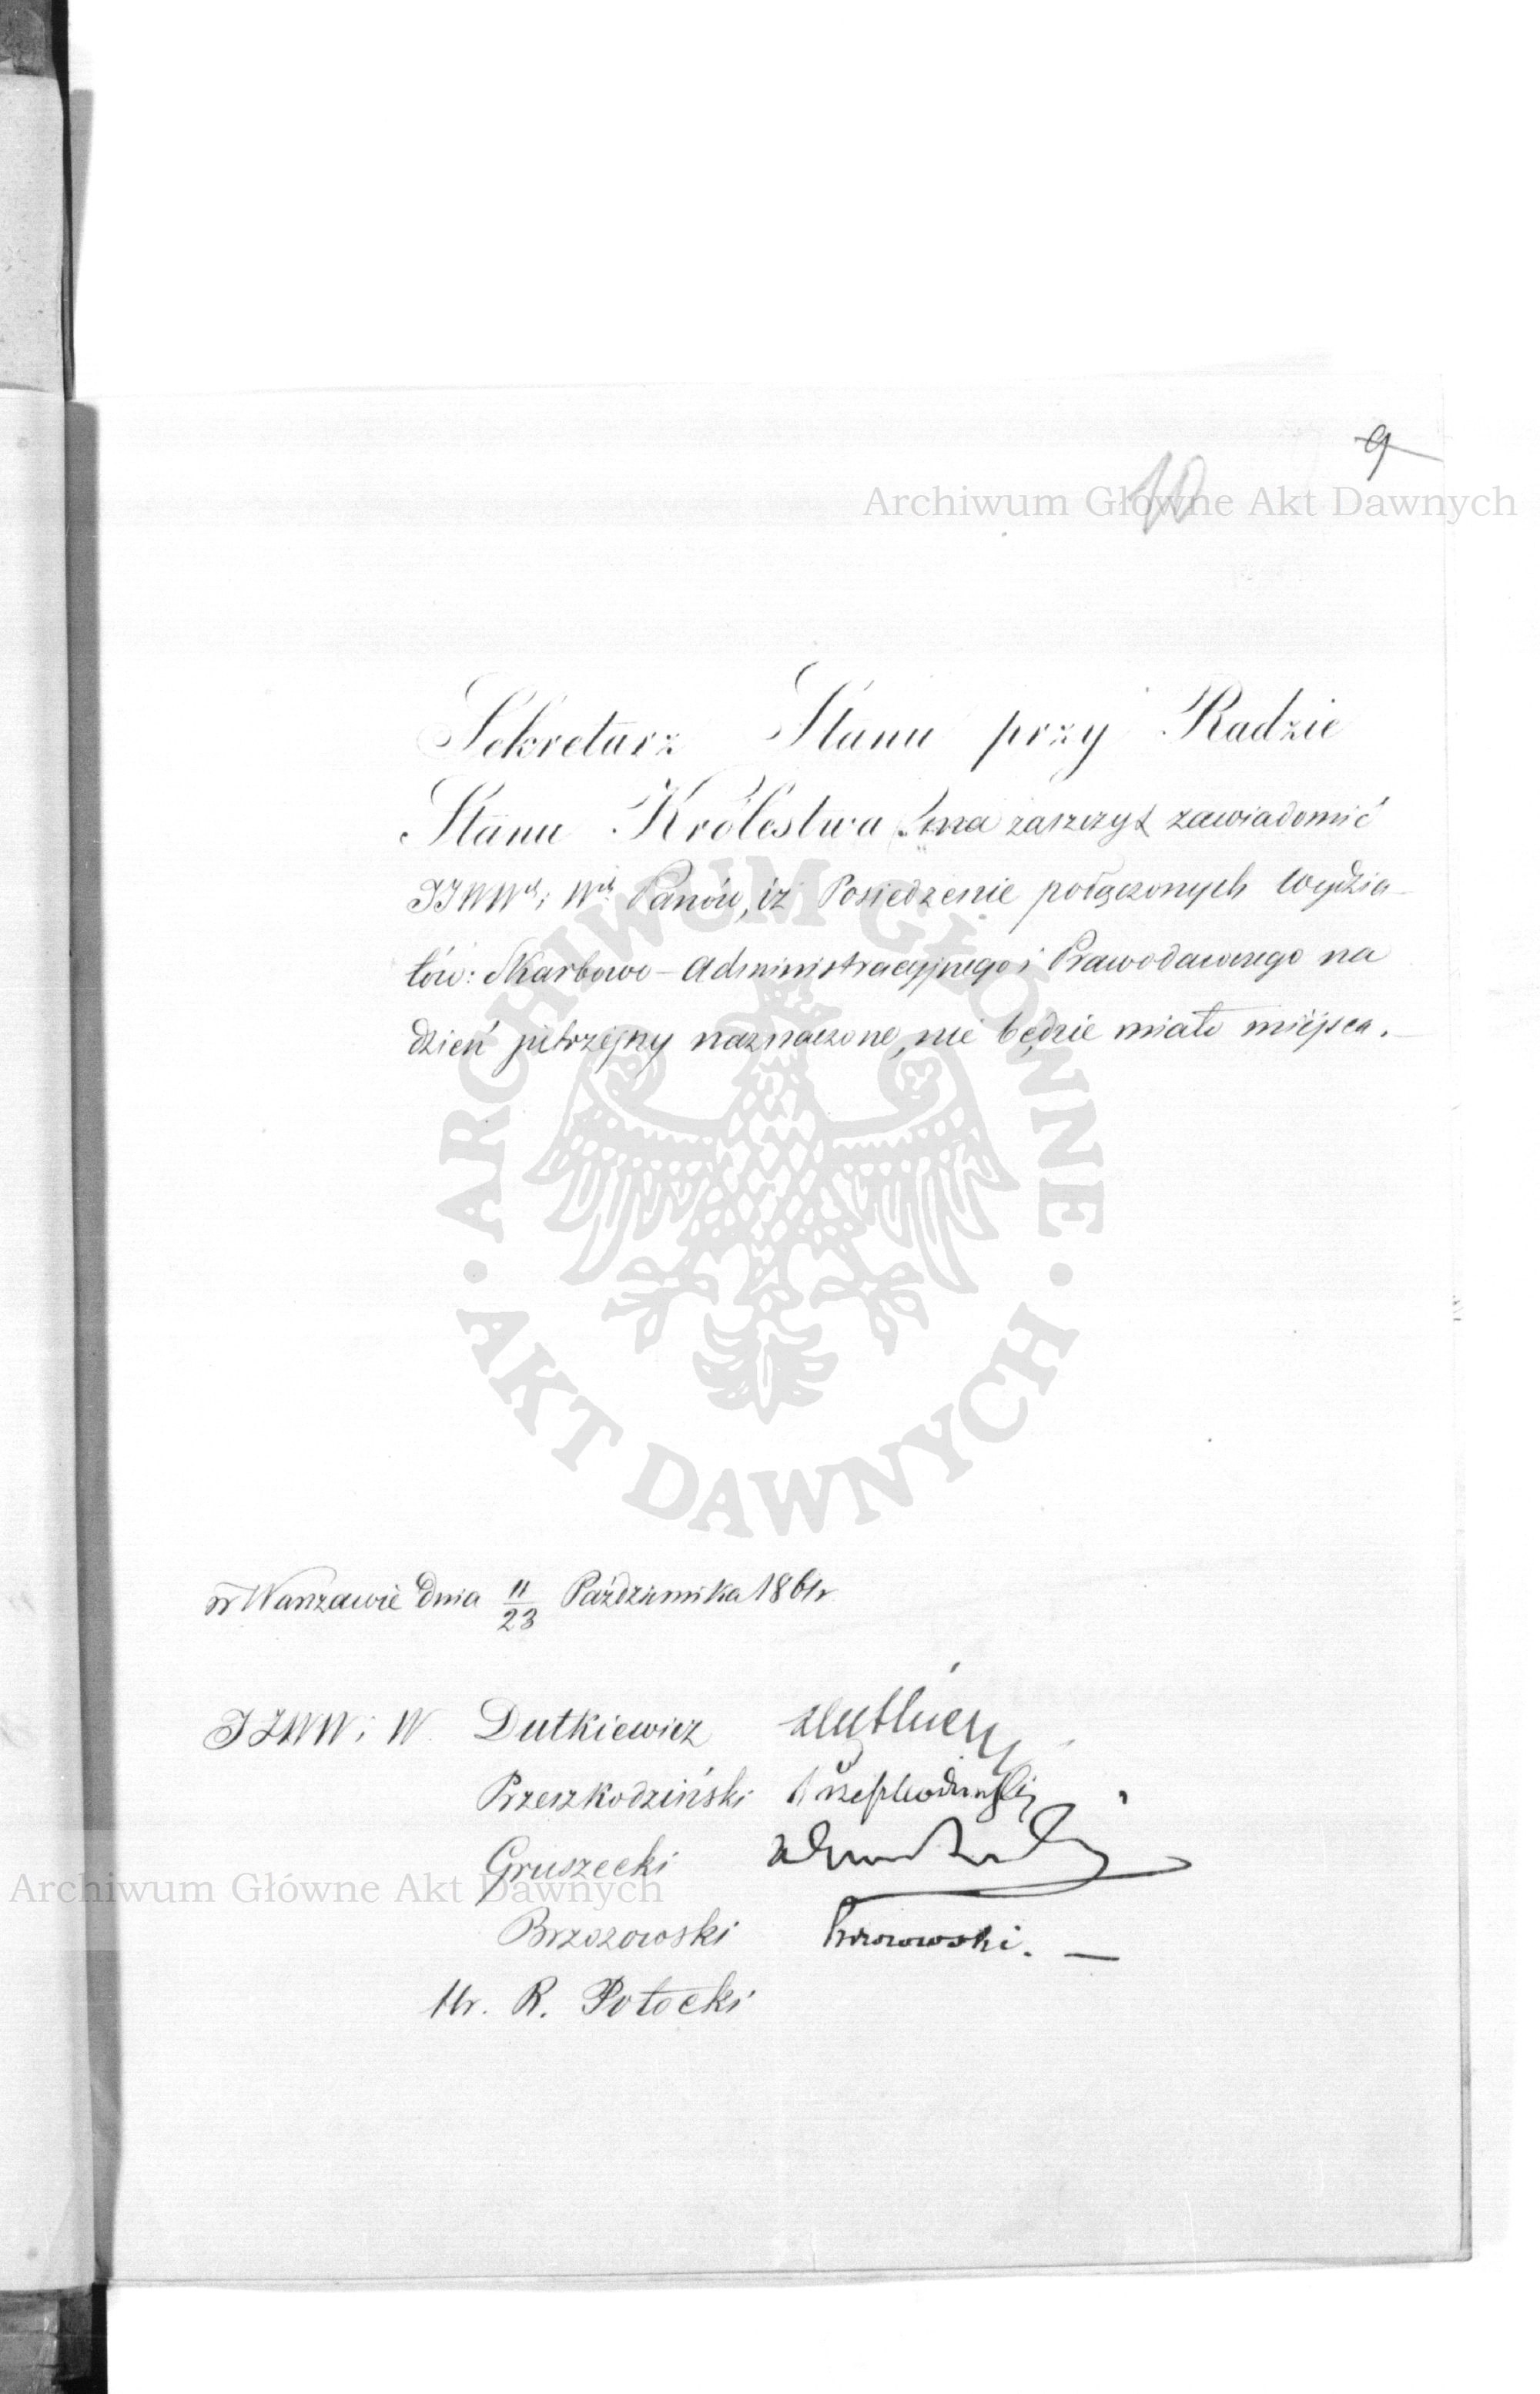 9
10
Archiwum Główne Akt Dawnych
Sekretarz Stanu przy Radzie
Stanu Królestwa, ma zaszczyt zawiadomić
JJWWch i Wch Panów, iż Posiedzenie połączonych Wydzia-
łów: Skarbowo-Administracyjnego i Prawodawczego na
dzień jutrzejszy naznaczone, nie będzie miało miejsca.
ARCHIWUM GŁÓWNE
AKT DAWNYCH
w Warszawie dnia 11/23 Października 1861 r
JJWW i W. Dutkiewicz
Przeszkodziński Przeszkodziński
Gruszecki
Archiwum Główne Akt Dawnych
Brzozowski Brzozowski. —
Hr. R. Potocki